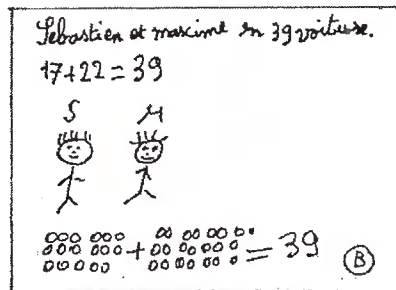 Sebastien et maxime en 39 voiture.
17+22=39
S M
+ = 39
B